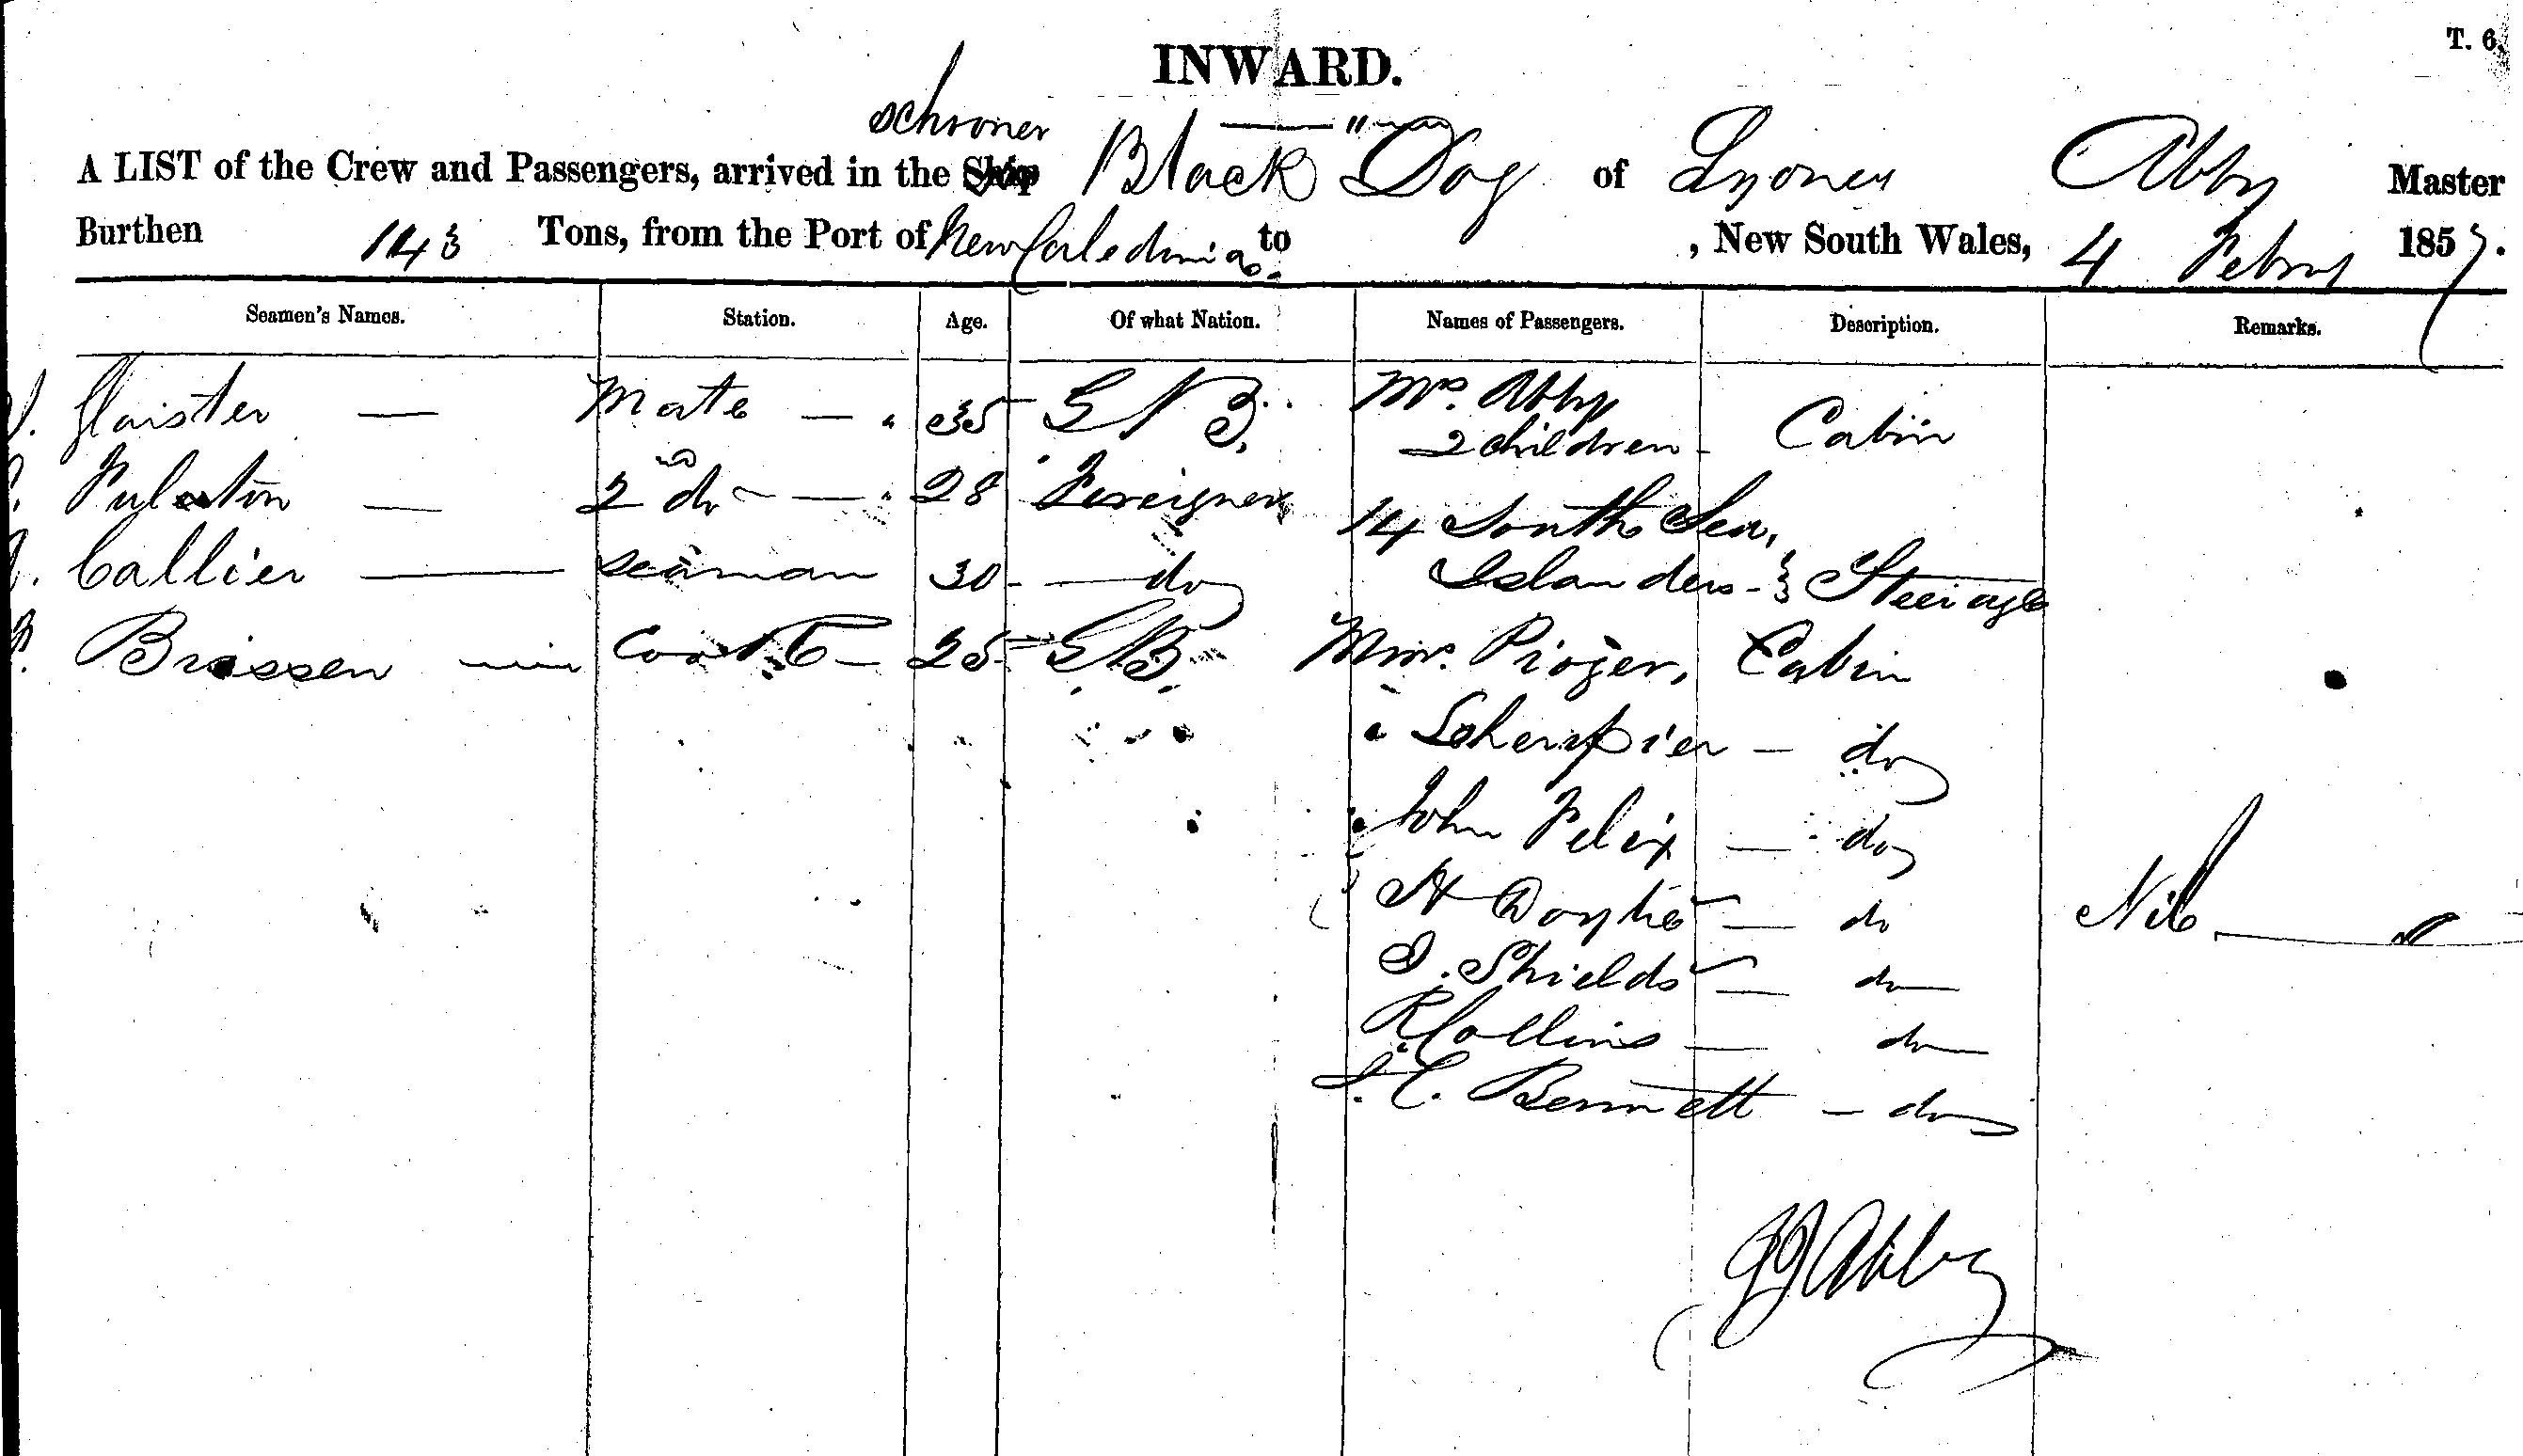 T. 6.
INWARD.
schooner
A LIST of the Crew and Passengers, arrived in the Ship Black Dog of Sydney Abby Master
Burthen 143 Tons, from the Port of New Caledonia to , New South Wales, 4 Febry 1857.
Seamen's Names. Station. Age. Of what Nation. Names of Passengers. Description. Remarks.
Glaister — Mate — 35 G B. Mrs. Abby
2 children - Cabin
Fulston — 2nd do — 28 Foreigner 14 South Sea
Islanders - Steerage
Callier — seaman 30 - do
Brissen Cook — 25 G B Monr. Pioger, Cabin
" Scherpier - do
" John Felix — do
H — do Nil
J. Shields — do
R Collins — do
J. C. Bennett - do
JJ Abby